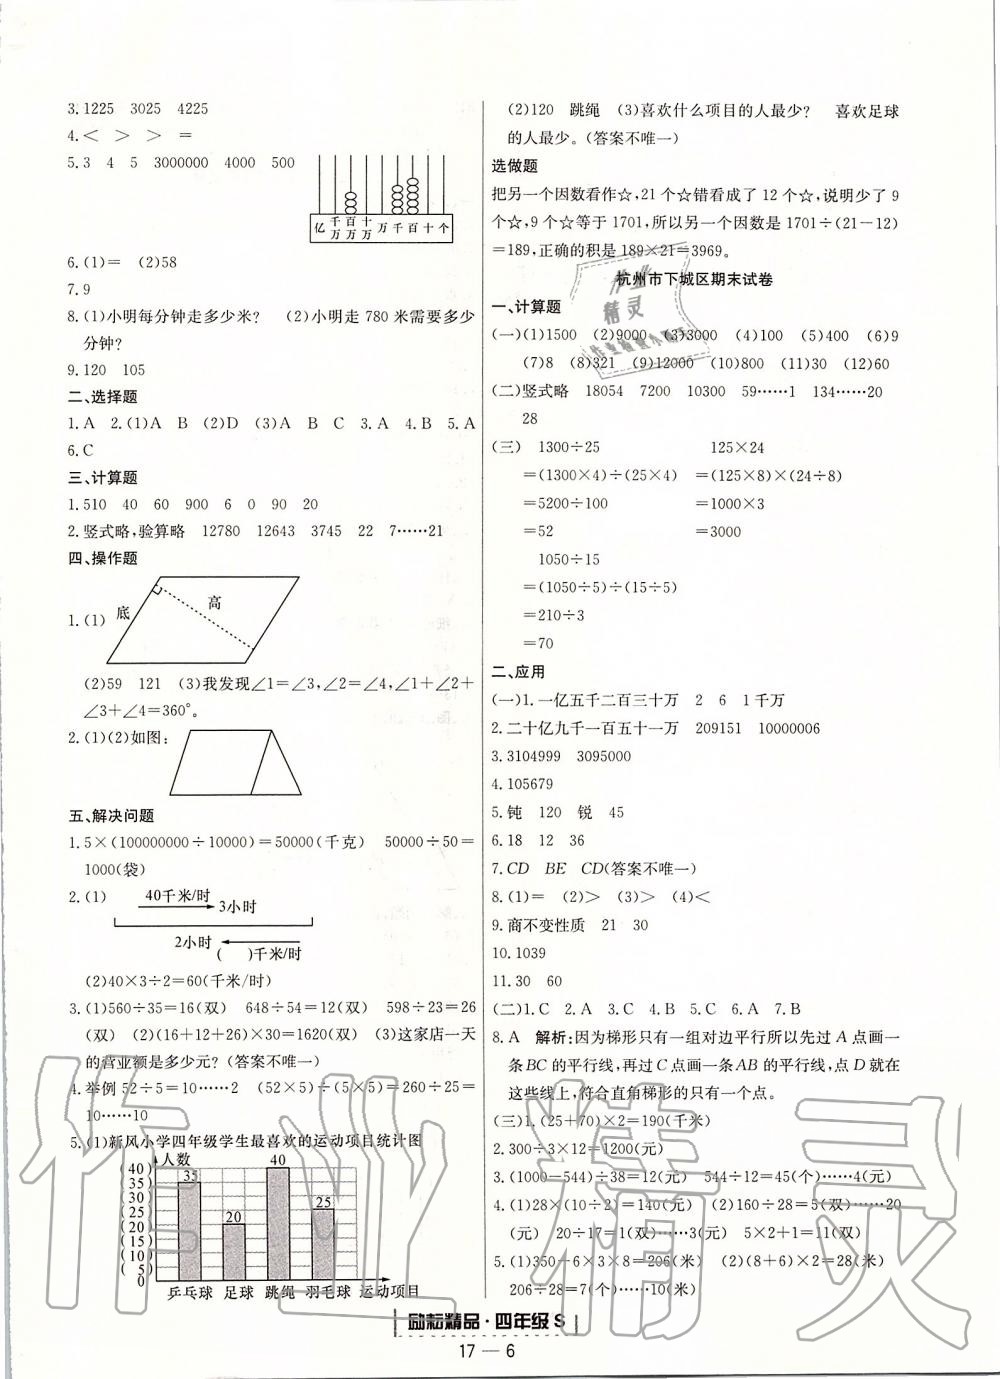 3.1225 3025 4225
4.< > > =
5.3 4 5 3000000 4000 500
亿 千万 百万 十万 万 千 百 十 个
6.(1)= (2)58
7.9
8.(1)小明每分钟走多少米? (2)小明走 780 米需要多少
分钟?
9.120 105
二、选择题
1.A 2.(1)A B (2)D (3)A B C 3.A 4.B 5.A
6.C
三、计算题
1.510 40 60 900 6 0 90 20
2.竖式略,验算略 12780 12643 3745 22 7……21
四、操作题
1.(1) 底 高
(2)59 121 (3)我发现∠1=∠3,∠2=∠4,∠1+∠2+
∠3+∠4=360°。
2.(1)(2)如图:
五、解决问题
1.5×(100000000÷10000)=50000(千克) 50000÷50=
1000(袋)
2.(1) 40千米/时 3小时
2小时 ( )千米/时
(2)40×3÷2=60(千米/时)
3.(1)560÷35=16(双) 648÷54=12(双) 598÷23=26
(双) (2)(16+12+26)×30=1620(双) (3)这家店一天
的营业额是多少元? (答案不唯一)
4.举例 52÷5=10……2 (52×5)÷(5×5)=260÷25=
10……10
5.(1)新风小学四年级学生最喜欢的运动项目统计图
人数
(40)
(35)
(30)
(25)
(20)
(15)
(10)
( 5)
0
35 20 40 25
乒乓球 足球 跳绳 羽毛球 运动项目
(2)120 跳绳 (3)喜欢什么项目的人最少? 喜欢足球
的人最少。(答案不唯一)
选做题
把另一个因数看作☆,21 个☆错看成了 12 个☆,说明少了 9
个☆,9 个☆等于 1701,所以另一个因数是 1701÷(21-12)
=189,正确的积是 189×21=3969。
杭州市下城区期末试卷
一、计算题
(一)(1)1500 (2)9000 (3)3000 (4)100 (5)400 (6)9
(7)8 (8)321 (9)12000 (10)800 (11)30 (12)60
(二)竖式略 18054 7200 10300 59……1 134……20
28
(三) 1300÷25 125×24
=(1300×4)÷(25×4) =(125×8)×(24÷8)
=5200÷100 =1000×3
=52 =3000
1050÷15
=(1050÷5)÷(15÷5)
=210÷3
=70
二、应用
(一)1.一亿五千二百三十万 2 6 1千万
2.二十亿九千一百五十一万 209151 10000006
3.3104999 3095000
4.105679
5.钝 120 锐 45
6.18 12 36
7.CD BE CD(答案不唯一)
8.(1)= (2)> (3)> (4)<
9.商不变性质 21 30
10.1039
11.30 60
(二)1.C 2.A 3.C 4.B 5.C 6.A 7.B
8.A 解析:因为梯形只有一组对边平行所以先过 A 点画一
条 BC 的平行线,再过 C 点画一条 AB 的平行线,点 D 就在
这些线上,符合直角梯形的只有一个点。
(三)1.(25+70)×2=190(千米)
2.300÷3×12=1200(元)
3.(1000-544)÷38=12(元) 544÷12=45(个)……4(元)
4.(1)28×(10÷2)=140(元) (2)160÷28=5(双)……20
(元) 20÷17=1(双)……3(元) 5×2+1=11(双)
5.(1)350-6×3×8=206(米) (2)(8+6)×2=28(米)
206÷28=7(个)……10(米)
励耘精品·四年级 S
17 — 6
作业精灵
作业
精灵